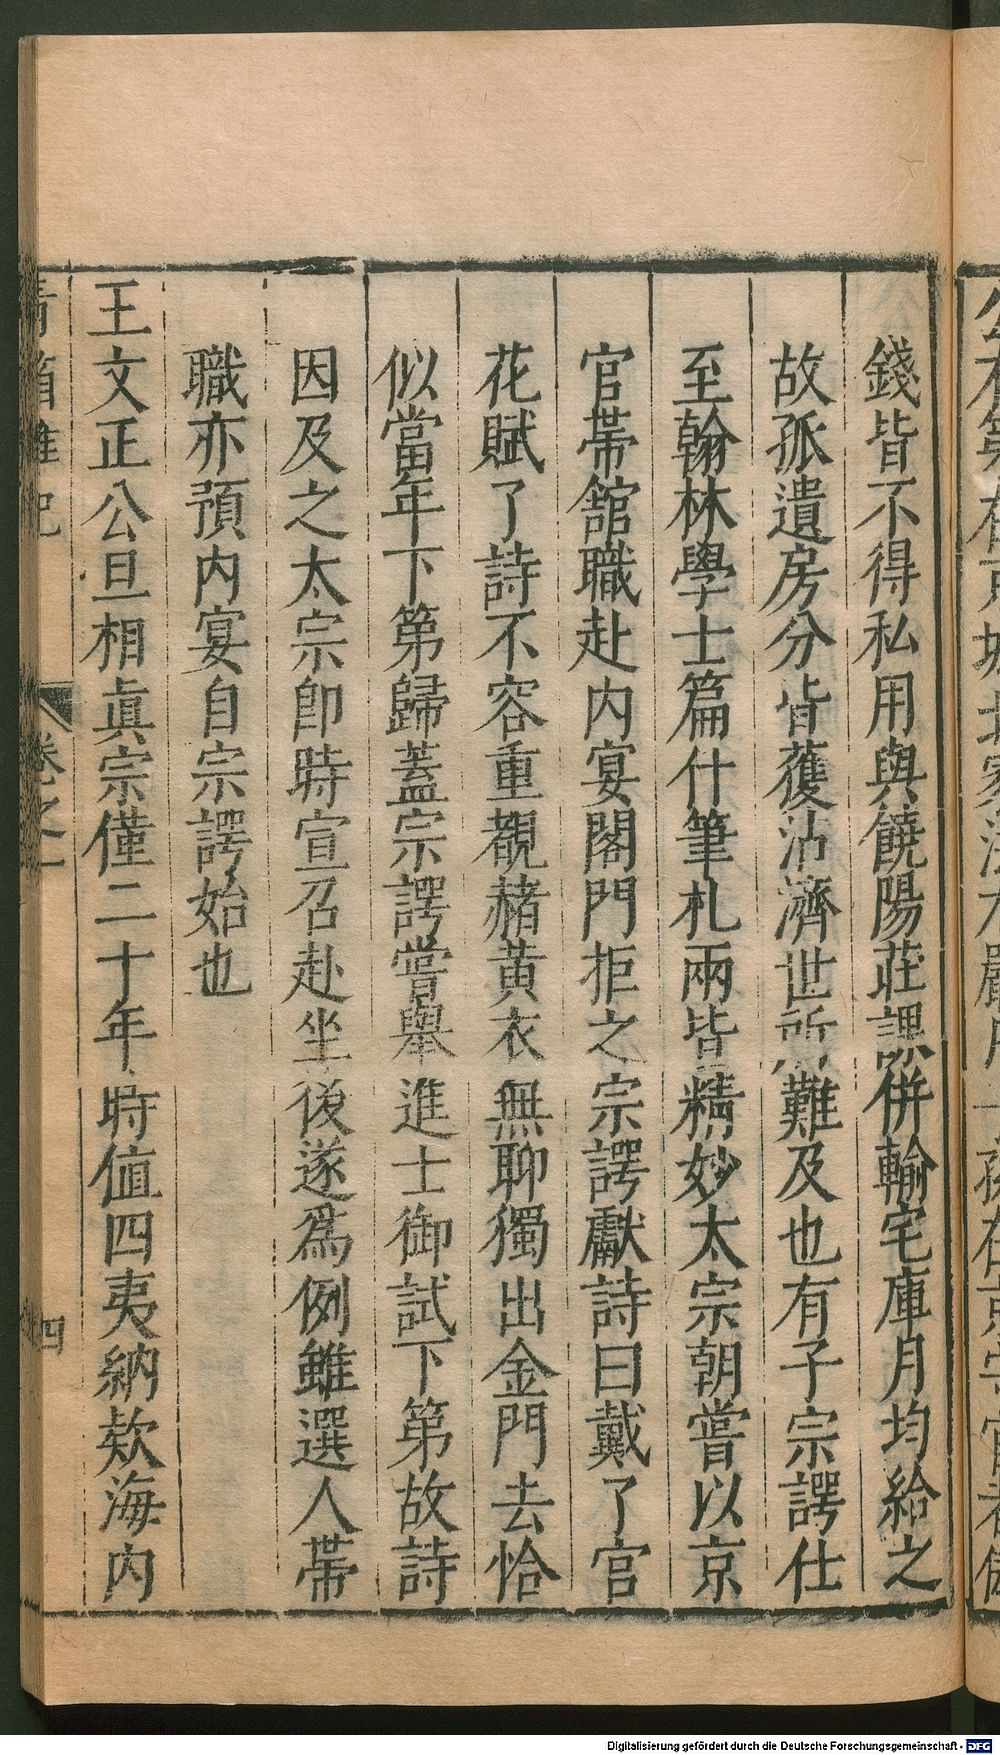 錢皆不得私用與饒陽莊課併輸宅庫月均給之
故孤遺房分皆獲沾濟世所難及也有子宗諤仕
至翰林學士篇什筆札兩皆精妙太宗朝嘗以京
官帶館職赴内宴閤門拒之宗諤獻詩曰戴了官
花賦了詩不容重覩赭黃衣無聊獨出金門去恰
似當年下第歸蓋宗諤嘗舉進士御試下第故詩
因及之太宗卽時宣召赴坐後遂爲例雖選人帶
職亦預内宴自宗諤始也
王文正公旦相眞宗僅二十年時值四夷納欵海内
青箱雜記
卷之一
四
Digitalisierung gefördert durch die Deutsche Forschungsgemeinschaft - DFG